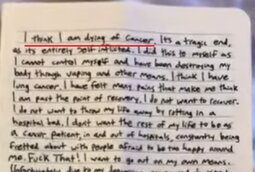 I think I am dying of cancer. Its a tragic end,
as its entirely self inflicted. I did this to myself as
I cannot control myself and have been destroying my
body through vaping and other means. I think I have
lung cancer. I have felt many pains that make me think
I am past the point of recovery. I do not want to recover.
I do not want to throw my life away by rotting in a
hospital bed. I dont want the rest of my life to be as
a cancer patient, in and out of hospitals, constantly being
fretted about with people afraid to be too happy around
me. FUCK That! I want to go out on my own means.
Unfortunately due to my